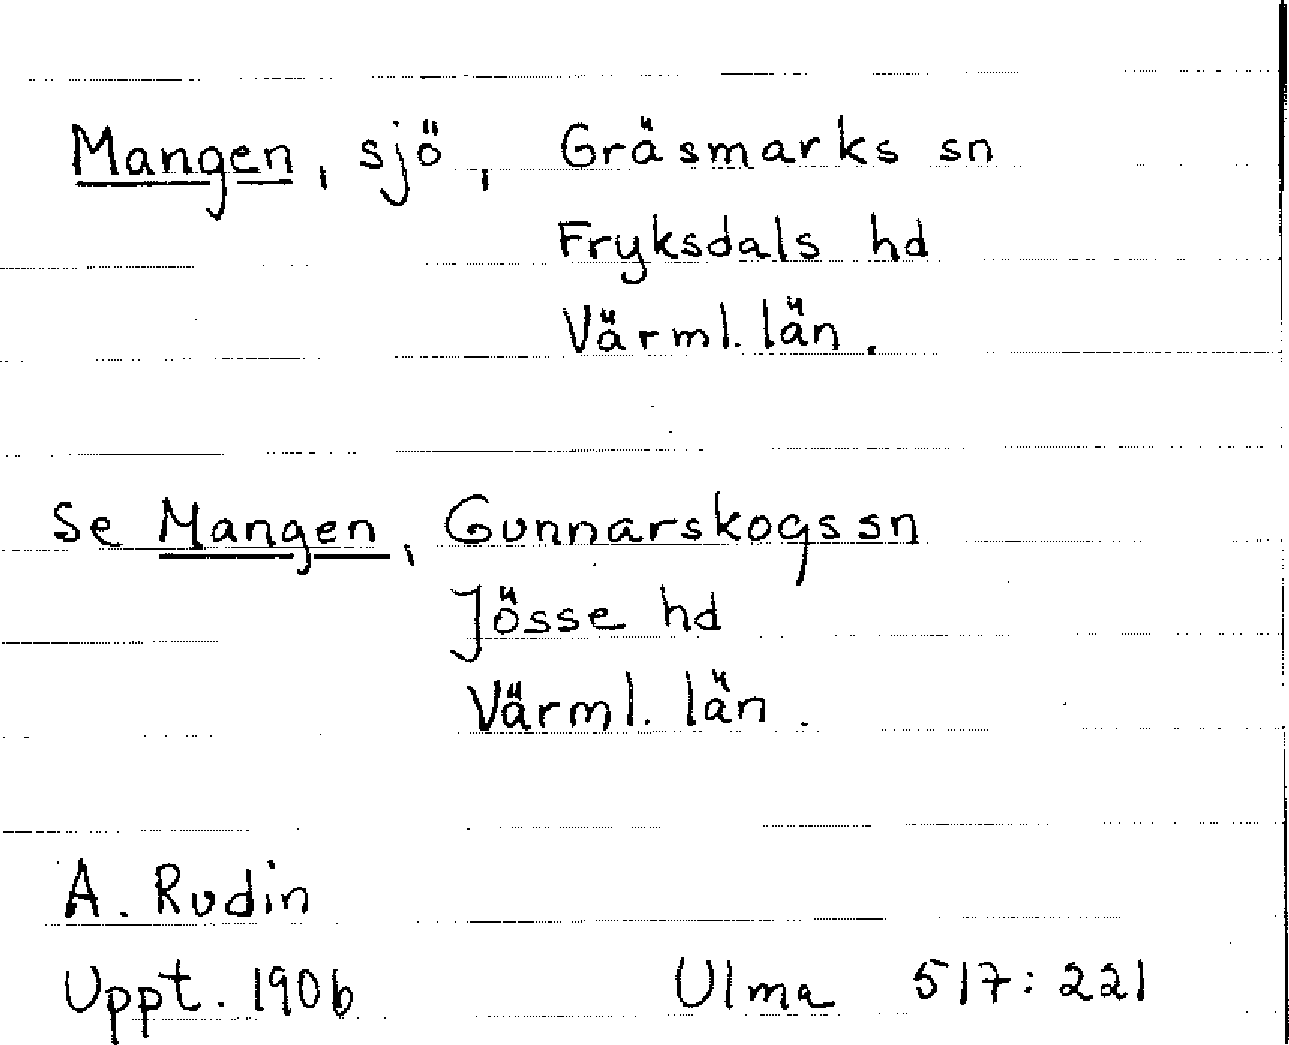 Mangen, sjö, Gräsmarks sn
Fryksdals hd
Värml. län.
Se Mangen, Gunnarskogs sn
Jösse hd
Värml. län.
A. Rudin
Uppt. 1906 Ulma 517:221